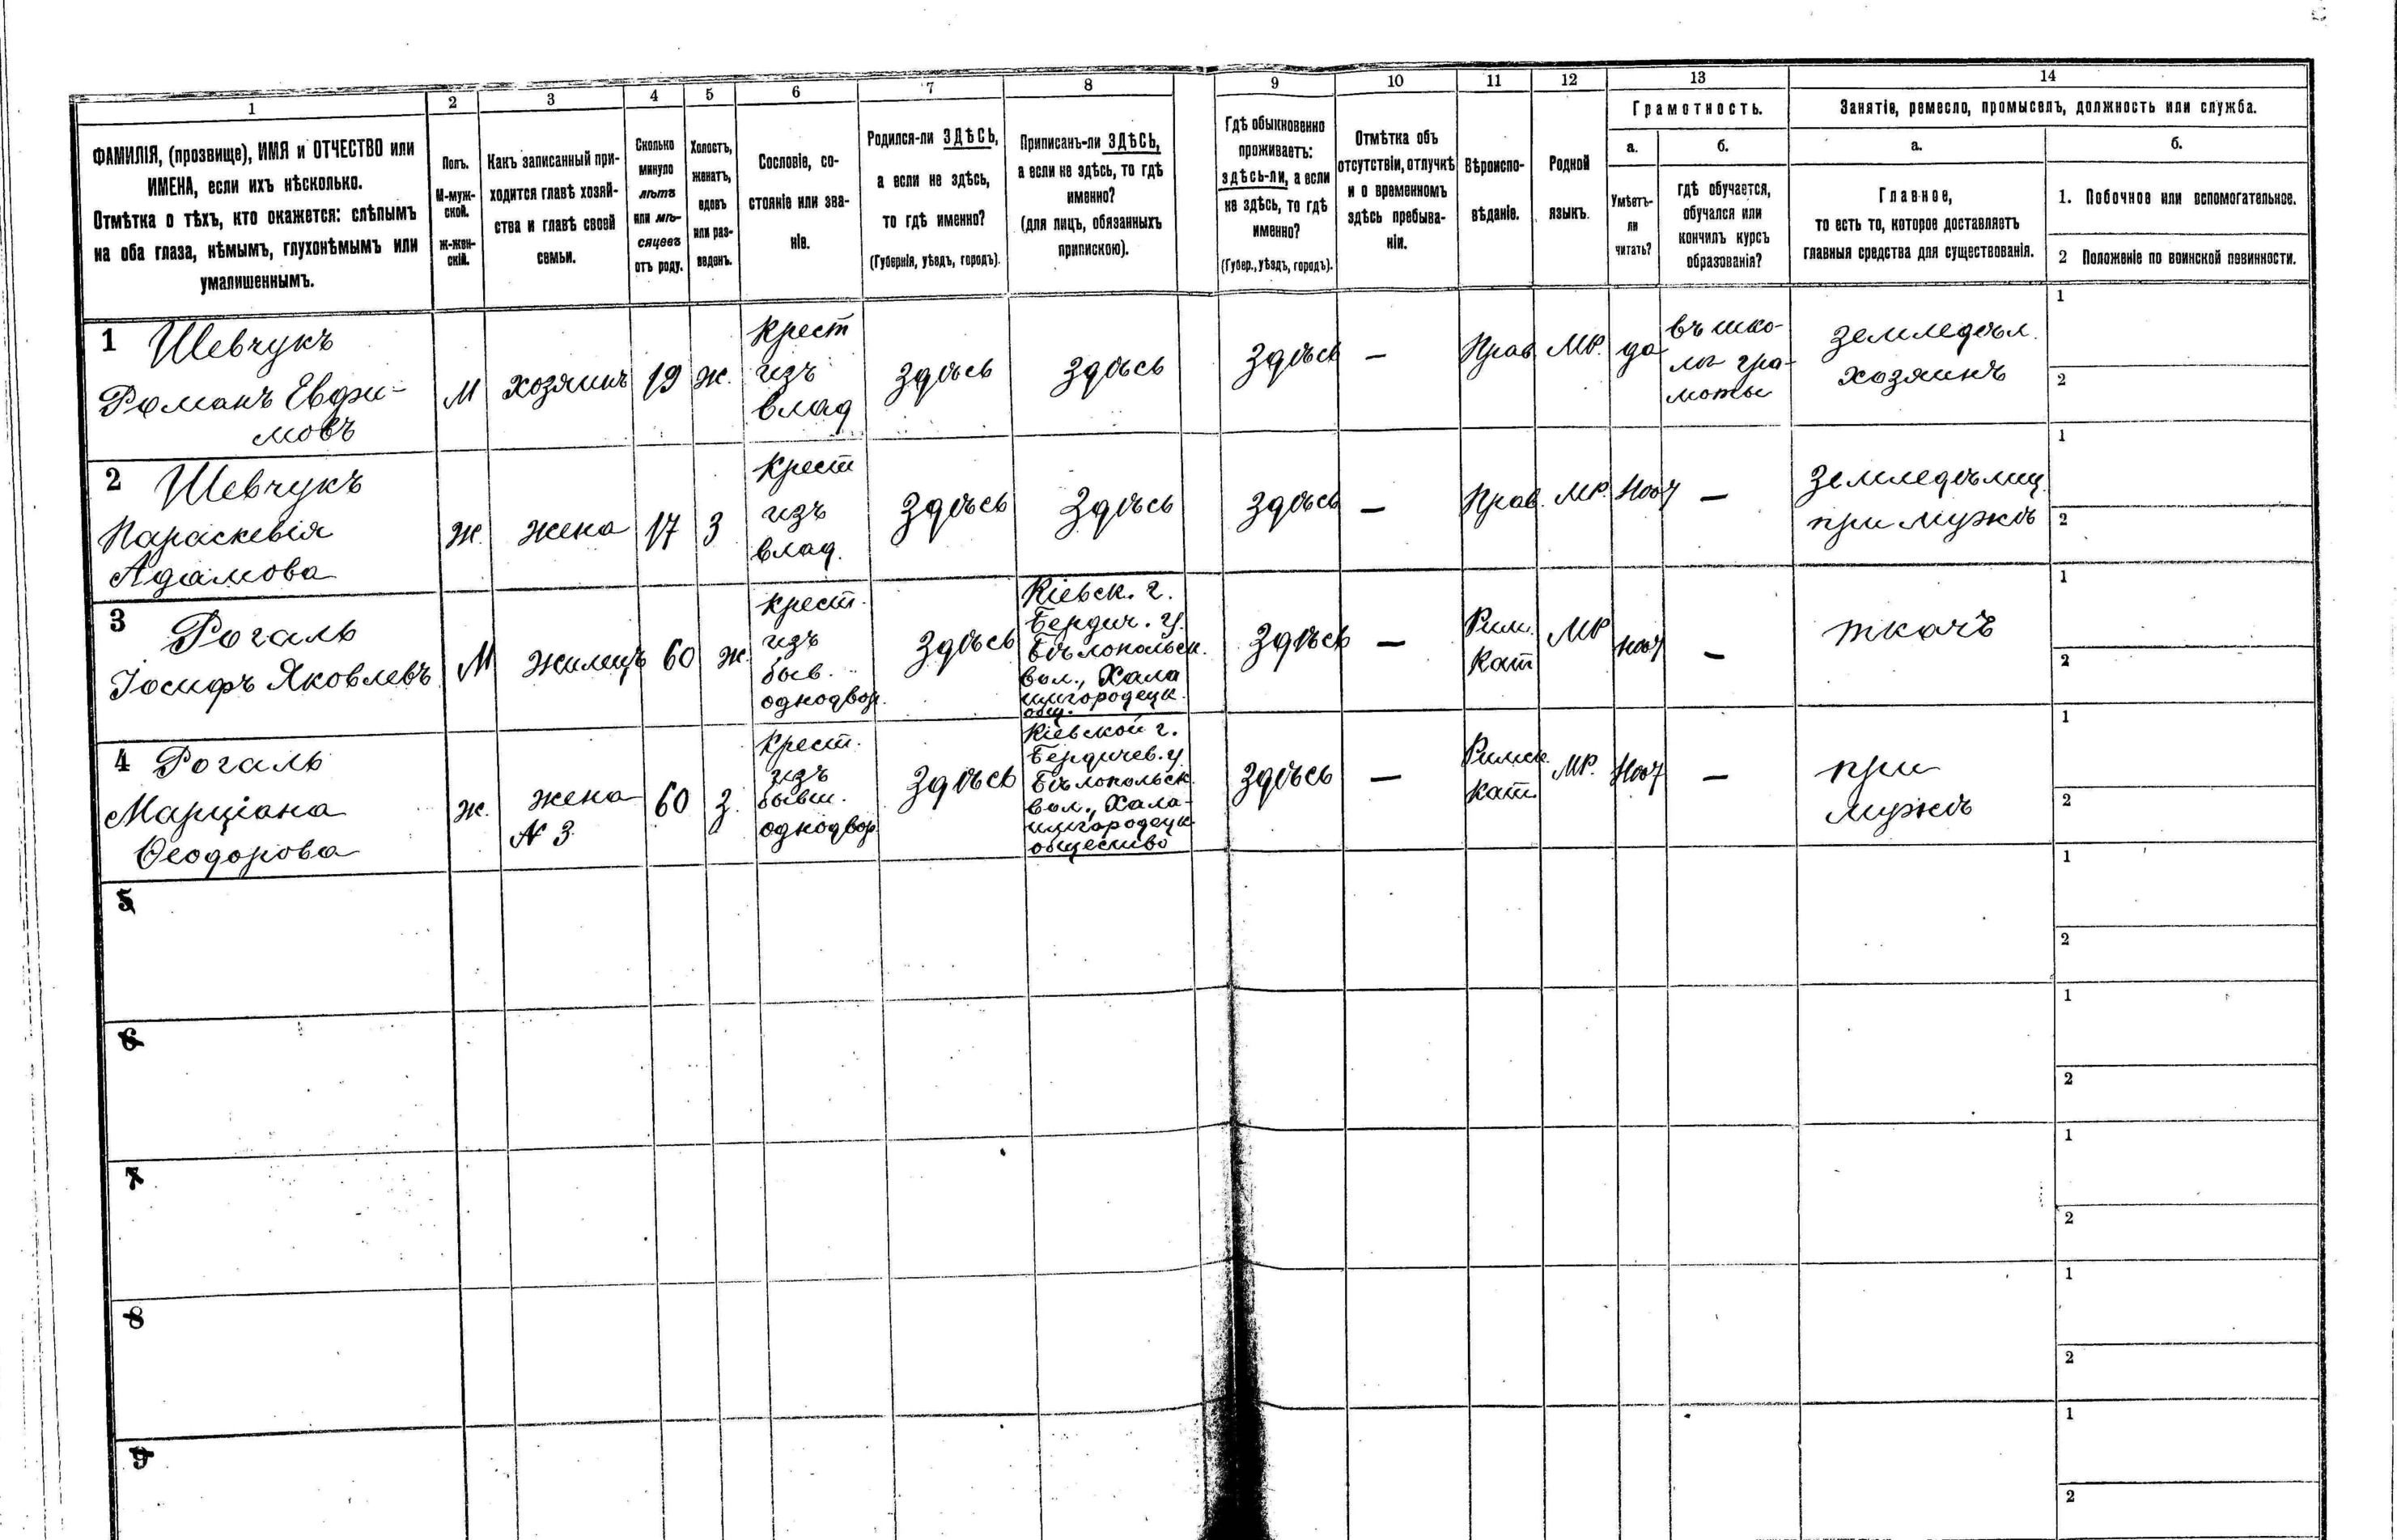 1 2 3 4 5 6 7 8 9 10 11 12 13 14
ФАМИЛІЯ, (прозвище), ИМЯ и ОТЧЕСТВО или
ИМЕНА, если ихъ нѣсколько.
Отмѣтка о тѣхъ, кто окажется: слѣпымъ
на оба глаза, нѣмымъ, глухонѣмымъ или
умалишеннымъ.
Полъ.
М-муж-
ской.
Ж-жен-
скій.
Какъ записанный при-
ходится главѣ хозяй-
ства и главѣ своей
семьи.
Сколько
минуло
лѣтъ
или мѣ-
сяцевъ
отъ роду.
Холостъ,
женатъ,
вдовъ
или раз-
веденъ.
Сословіе, со-
стояніе или зва-
ніе.
Родился-ли ЗДѢСЬ,
а если не здѣсь,
то гдѣ именно?
(Губернія, уѣздъ, городъ).
Приписанъ-ли ЗДѢСЬ,
а если не здѣсь, то гдѣ
именно?
(для лицъ, обязанныхъ
припискою).
Гдѣ обыкновенно
проживаетъ:
здѣсь-ли, а если
не здѣсь, то гдѣ
именно?
(Губер., уѣздъ, городъ).
Отмѣтка объ
отсутствіи, отлучкѣ
и о временномъ
здѣсь пребыва-
ніи.
Вѣроиспо-
вѣданіе.
Родной
языкъ.
Грамотность.
а.
Умѣетъ-
ли
читать?
б.
гдѣ обучается,
обучался или
кончилъ курсъ
образованія?
Занятіе, ремесло, промыселъ, должность или служба.
а.
Главное,
то есть то, которое доставляетъ
главныя средства для существованія.
б.
1. Побочное или вспомогательное.
2 Положеніе по воинской повинности.
1 Шевчукъ
Романъ Евфи-
мовъ
М
хозяинъ
19
ж.
Крест
изъ
влад
Здѣсь
Здѣсь
Здѣсь
—
Прав
МР.
да
въ шко-
лѣ гра-
моты
земледѣл.
хозяинъ
1
2
2 Шевчукъ
Параскевія
Адамова
Ж.
жена
17
З
Крест
изъ
влад.
Здѣсь
Здѣсь
Здѣсь
—
Прав.
МР.
—
земледѣлиц.
при мужѣ
1
2
3 Рогаль
Іосифъ Яковлевъ
М
жилецъ
60
ж.
крест.
изъ
быв.
однодвор.
Здѣсь
Кіевск. г.
Бердич. у.
Бѣлопольск.
вол., Хала
имгородецк.
общ.
Здѣсь
—
Рим.
Кат
МР
—
ткачъ
1
2
4 Рогаль
Марціана
Ѳеодорова
Ж.
жена
№ 3
60
З.
Крест.
изъ
бывш.
однодвор.
Здѣсь
Кіевской г.
Бердичев. у.
Бѣлопольск.
вол., Хала-
имгородецк.
общество
Здѣсь
—
Римск.
Кат.
МР.
—
при
мужѣ
1
2
5
1
2
6
1
2
7
1
2
8
1
2
9
1
2